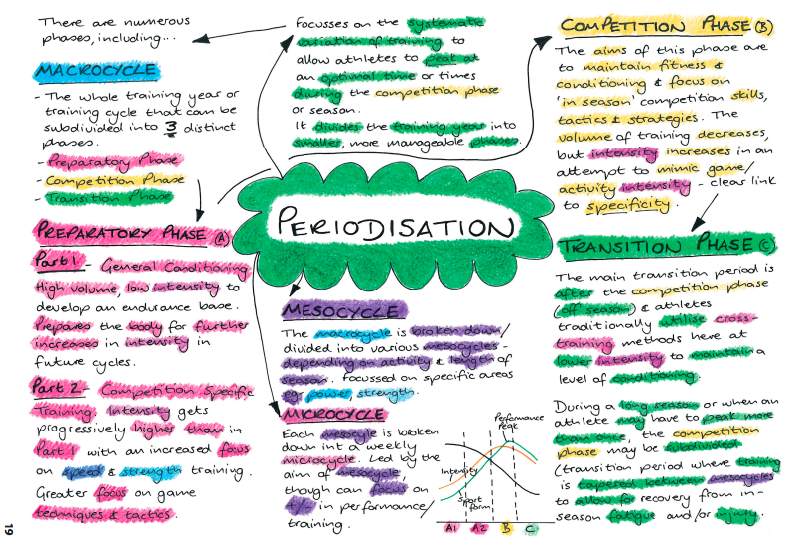 There are numerous
phases, including...
MACROCYCLE
- The whole training year or
training cycle that can be
subdivided into 3 distinct
phases.
- Preparatory Phase
- Competition Phase
- Transition Phase
PREPARATORY PHASE (A)
Part 1 - General Conditioning
High volume, low intensity to
develop an endurance base.
Prepares the body for further
increases in intensity in
future cycles.
Part 2 - Competition Specific
Training. Intensity gets
progressively higher than in
Part 1 with an increased focus
on speed & strength training.
Greater focus on game
techniques & tactics.
Focusses on the systematic
variation of training to
allow athletes to peak at
an optimal time or times
during the competition phase
or season.
It divides the training year into
smaller, more manageable phases.
PERIODISATION
MESOCYCLE
The macrocycle is broken down/
divided into various mesocycles -
depending on activity & length of
season. Focussed on specific areas
eg. power strength.
MICROCYCLE
Each mesocycle is broken
down int a weekly
microcycle. Led by the
aim of mesocycle,
though can focus on
+/- in performance/
training.
Performance
Peak
Intensity
Sport
form
A1 A2 B C
COMPETITION PHASE (B)
The aims of this phase are
to maintain fitness &
conditioning & focus on
'in season' competition skills,
tactics & strategies. The
volume of training decreases,
but intensity increases in an
attempt to mimic game/
activity intensity - clear link
to specificity.
TRANSITION PHASE (C)
The main transition period is
after the competition phase
(off season) & athletes
traditionally utilise cross-
training methods here at
lower intensity to maintain a
level of conditioning.
During a long season or when an
athlete may have to peak more
than once, the competition
phase may be subdivided
(transition period where training
is tapered between mesocycles
to allow for recovery from in-
season fatigue and/or injury.
19